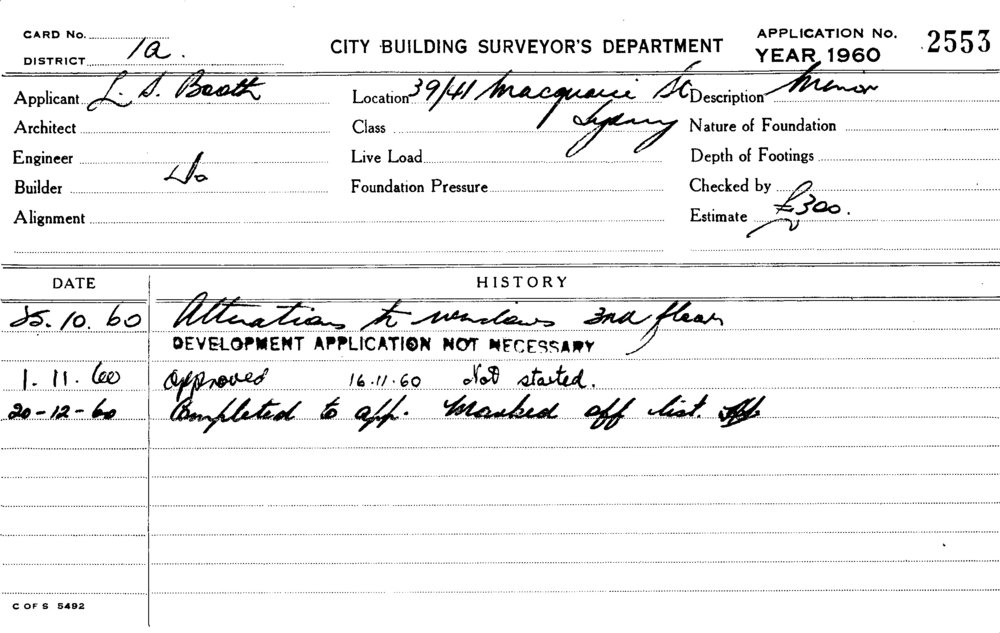 CARD No.
DISTRICT 1a.
CITY BUILDING SURVEYOR'S DEPARTMENT
APPLICATION No. 2553
YEAR 1960
Applicant L. S. Booth
Location 39/41 Macquarie St
Sydney
Description Minor
Architect
Class
Nature of Foundation
Engineer
Live Load
Depth of Footings
Builder Do
Foundation Pressure
Checked by
Alignment
Estimate £300.
DATE HISTORY
25.10.60 Alterations to windows 3rd floor
DEVELOPMENT APPLICATION NOT NECESSARY
1.11.60 Approved 16.11.60 Not started.
20-12-60 Completed to app. Marked off list.
C OF S 5492